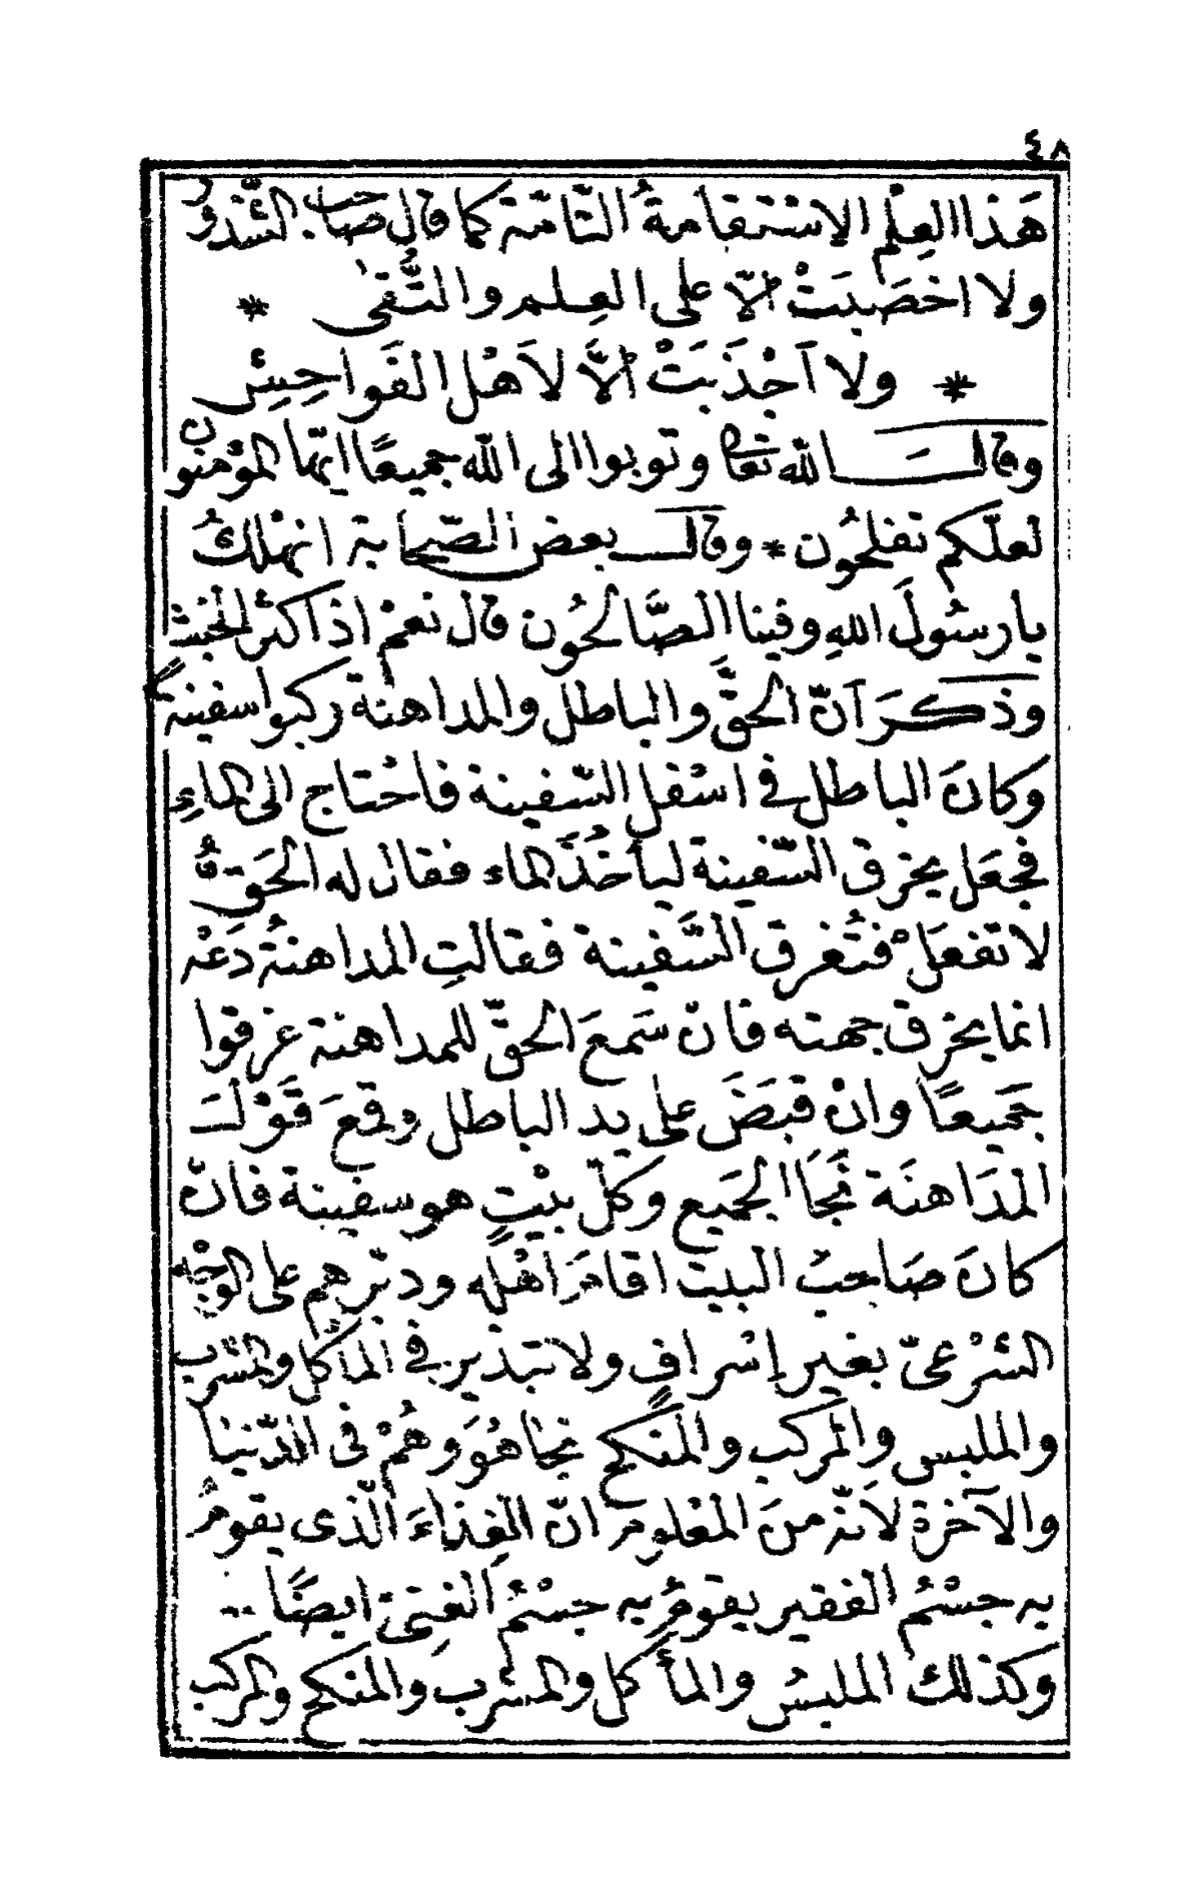 ٤٨
هَذا العِلْم الاسْتقامةُ التّامّة كما قال صَاحب الشّذور
ولا اخصَبَتْ الّا على العِلم والتُّقى *
* ولا آجْذَبَتْ الّا لاَهْل الفَواحِشْ
وقالَ الله تعالى وتوبوا الى الله جميعًا ايّها المؤمنون
لعلّكم تفلحُون * وقال بعض الصّحابة انهْلكُ
يا رسُولَ الله وفينا الصَّالحُون قال نعمْ اذا كثُر الخبث
وذكرَ آنّ الحقَّ والباطل والمداهنة ركبوا سفينةً
وكانَ الباطل في اسْفل السّفينة فاحْتاج الى الماءِ
فجعَل يخرق السّفينة ليأخُذَ الماء فقال له الحَقُّ
لا تفعَلْ فتُغرق السَّفينة فقالتِ المداهنةُ دَعْه
انما يخرق جهته فان سَمعَ الحقّ للمداهنة غرقوا
جَميعًا وانْ قبَضَ على يد الباطل وقعَ قَوْلَ
المدَاهنَة نَجَا الجَميع وكلّ بيْتٍ هو سفينة فانّ
كانَ صَاحبُ البيت اقامَ اهْلَه ودبّرهم على الوجْه
الشرْعىّ بغير إسْرافٍ ولا تبذير في المأكل والمشرب
والملبس والمركب والمنكح نجَا هُوَ وهُمْ فى الدّنيَا
والآخرة لاَنّه منَ المعْلوم انّ الغِذاءَ الّذى يقومُ
به جسْمُ الفقير يقومُ به جسْمُ الغنىّ ايضًا
وكذلك الملبسُ والمأكل والمشرب والمنكح والمركب